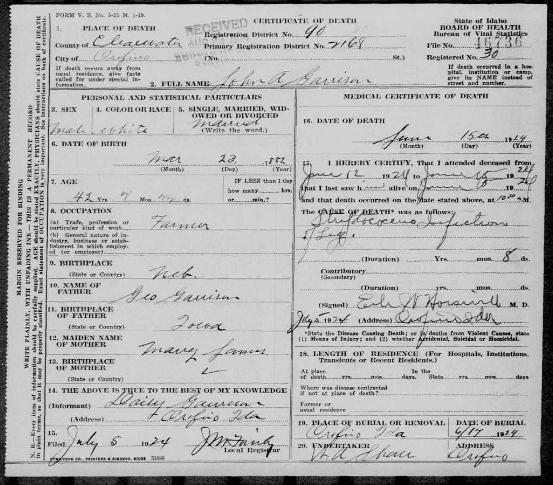 FORM V. S. No. 5-25 M. 1-19.
CERTIFICATE OF DEATH
State of Idaho
BOARD OF HEALTH
Bureau of Vital Statistics
RECEIVED
1. PLACE OF DEATH
County of Clearwater
City of Orofino
Registration District No. 90
Primary Registration District No. 2168
(No. St.)
File No. 46736
Registered No. 30
If death occurs away from usual residence, give facts called for under special information.
If death occurred in a hospital, institution or camp, give its NAME instead of street and number.
2. FULL NAME John A Garrison
PERSONAL AND STATISTICAL PARTICULARS
3. SEX
4. COLOR OR RACE
5. SINGLE, MARRIED, WIDOWED OR DIVORCED
(Write the word.)
Male white Married
6. DATE OF BIRTH
Mar 23, 1882
(Month) (Day) (Year)
7. AGE
IF LESS than 1 day
how many hrs.
or min.?
42 Yrs. Mos.
8. OCCUPATION
(a) Trade, profession or particular kind of work
Farmer
(b) General nature of industry, business or establishment in which employed (or employer)
9. BIRTHPLACE
(State or Country) Neb.
10. NAME OF FATHER Geo Garrison
11. BIRTHPLACE OF FATHER
(State or Country) Iowa
12. MAIDEN NAME OF MOTHER Mary James
13. BIRTHPLACE OF MOTHER
(State or Country)
14. THE ABOVE IS TRUE TO THE BEST OF MY KNOWLEDGE
(Informant) Daily Garrison
(Address) Orofino Ida
15.
Filed July 5 1924
Local Registrar
MEDICAL CERTIFICATE OF DEATH
16. DATE OF DEATH
June 15th 1924
(Month) (Day) (Year)
17. I HEREBY CERTIFY, That I attended deceased from
June 12 1924 to June 15 1924
that I last saw him alive on June 15 1924
and that death occurred on the date stated above, at 10 M.
The CAUSE OF DEATH* was as follows:
Streptococcus Infection
of Leg.
(Duration) Yrs. mos. 8 ds.
Contributory
(Secondary)
(Duration) Yrs. mos. ds.
(Signed) M. D.
1924 (Address) Orofino Ida
*State the Disease Causing Death; or in deaths from Violent Causes, state (1) Means of Injury; and (2) whether Accidental, Suicidal or Homicidal.
18. LENGTH OF RESIDENCE (For Hospitals, Institutions, Transients or Recent Residents.)
At place of death yrs. mos. days. In the State yrs. mos. days
Where was disease contracted if not at place of death?
Former or usual residence
19. PLACE OF BURIAL OR REMOVAL
Orofino Ida
DATE
6/17 1924
20. UNDERTAKER
ADDRESS
Orofino
MARGIN RESERVED FOR BINDING
WRITE PLAINLY, WITH UNFADING INK—THIS IS A PERMANENT RECORD